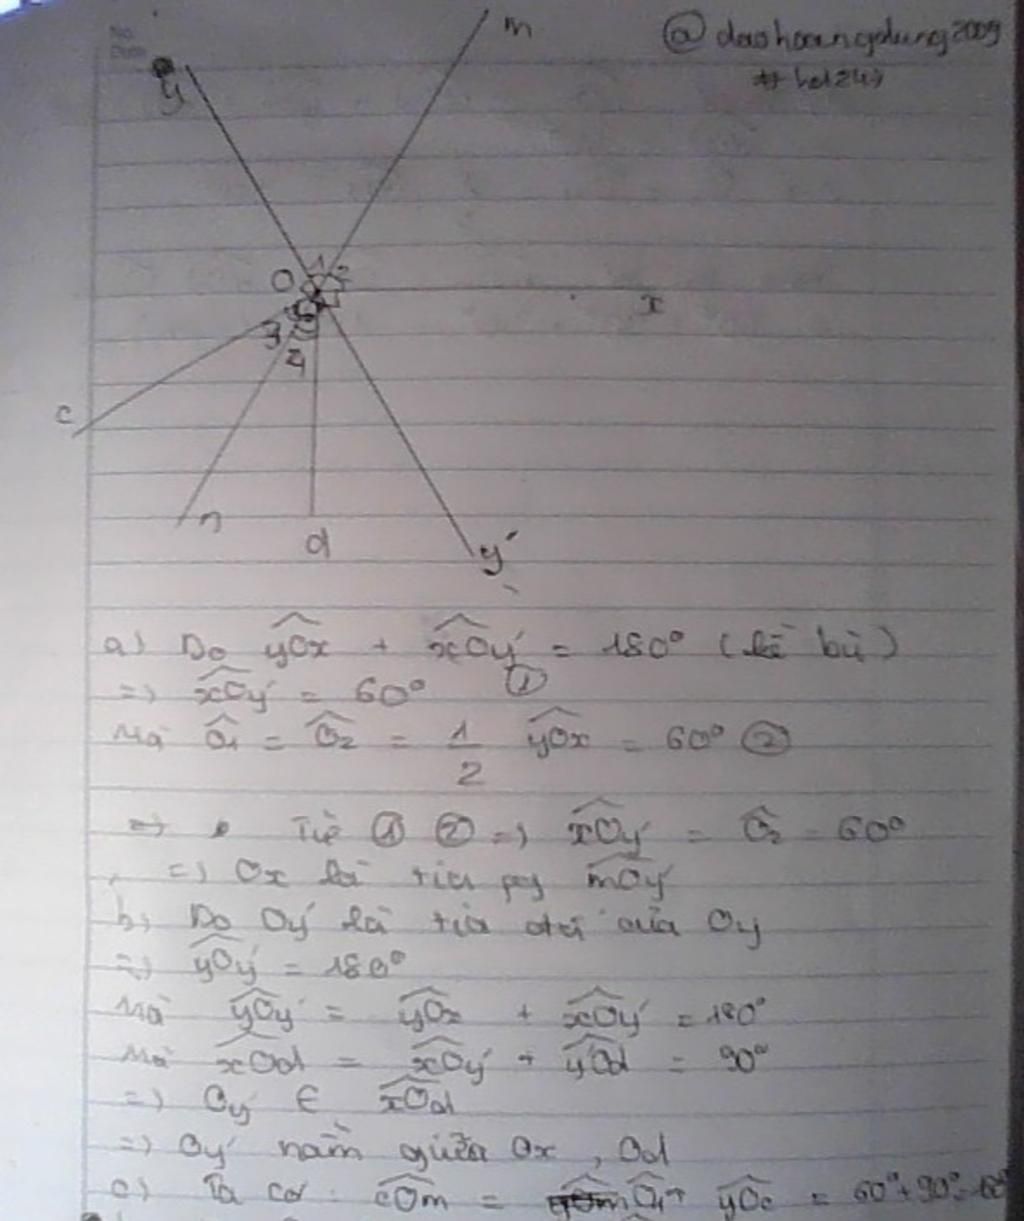 No.
Date
m
@daohoangdung2009
y
O 1 2
x
3
4
c
n
d
y'
a) Do yOx + xOy' = 180° (kề bù)
=> xOy' = 60° ①
Mà O1 = O2 = 1/2 yOx = 60° ②
=> Từ ① ② => xOy' = O2 = 60°
=> Ox là tia pg mOy'
b) Do Oy' là tia đối của Oy
=> yOy' = 180°
Mà yOy' = yOx + xOy' = 180°
Mà xOd = xOy' + y'Od = 90°
=> Oy' ∈ xOd
=> Oy' nằm giữa Ox, Od
c) Ta có: cOm = O1 + yOc = 60° + 90° =